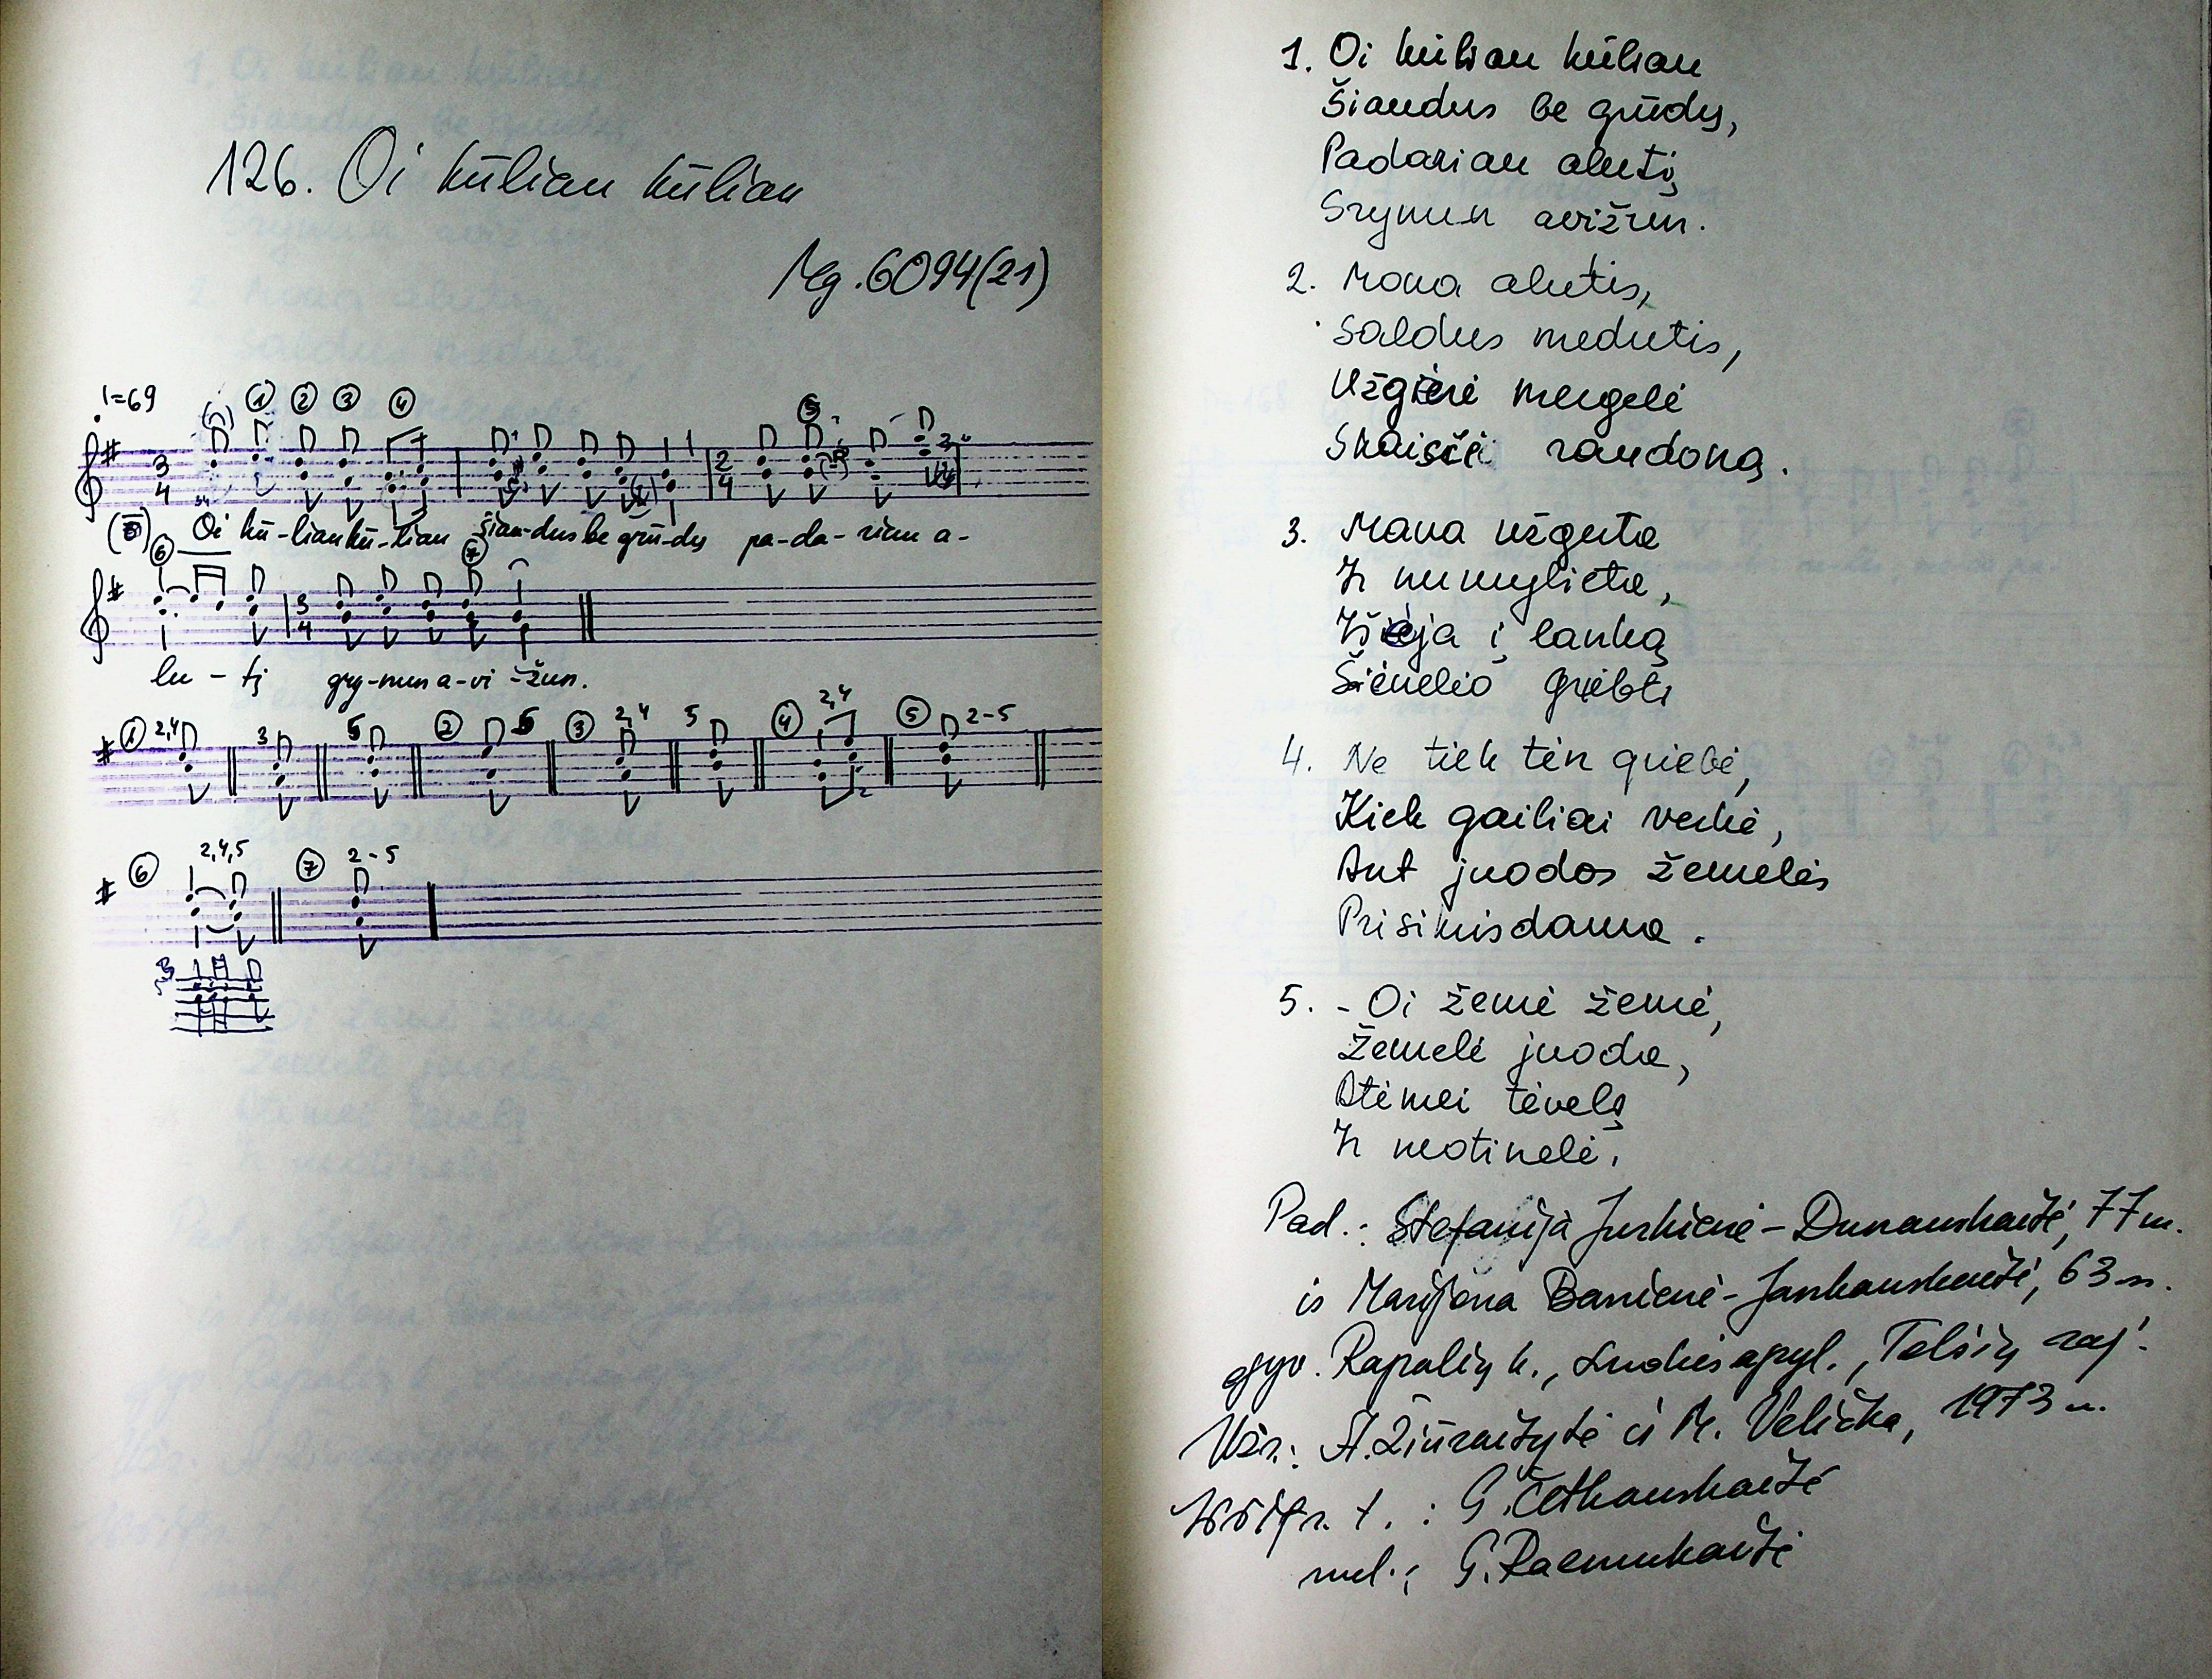 126. Oi kūlian kūlian
Mg. 6094(21)
=69
① ② ③ ④ ⑤
3
4
2
4
Oi kū-lian kū-lian šian-dus be grū-dų pa-da-rian a-
⑥ ⑦
3
4
lu-tį gry-nun a-vi-žun.
① 2,4 3 5 ② 5 ③ 2,4 5 ④ 2,4 ⑤ 2-5
⑥ 2,4,5 ⑦ 2-5
3
1. Oi kūlian kūlian
Šiaudus be grūdų,
Padarian alutį
Grynun avižun.
2. Mona alutis,
Saldus medutis,
Užgėrė mergelė
Skaisčė raudoną.
3. Mana užgerta
Ir numylieta,
Išėja į lanką
Šienelio griebti
4. Ne tiek tėn griebė,
Kiek gailiai verkė,
Ant juodos žemelės
Prisikńisdama.
5. - Oi žemė žemė,
Žemelė juoda,
Atėmei tėvelą
Ir motinelė.
Pad.: Stefanija Jurkienė-Dunauskaitė, 77m.
ir Marijona Barcienė-Jankauskaitė, 63 m.
gyv. Rapalių k., Luokės apyl., Telšių raj.
Užr.: A. Žiūraitytė ir M. Velička, 1973 m.
Iššifr. t.: G. Četkauskaitė
mel.: G. Razmukaitė